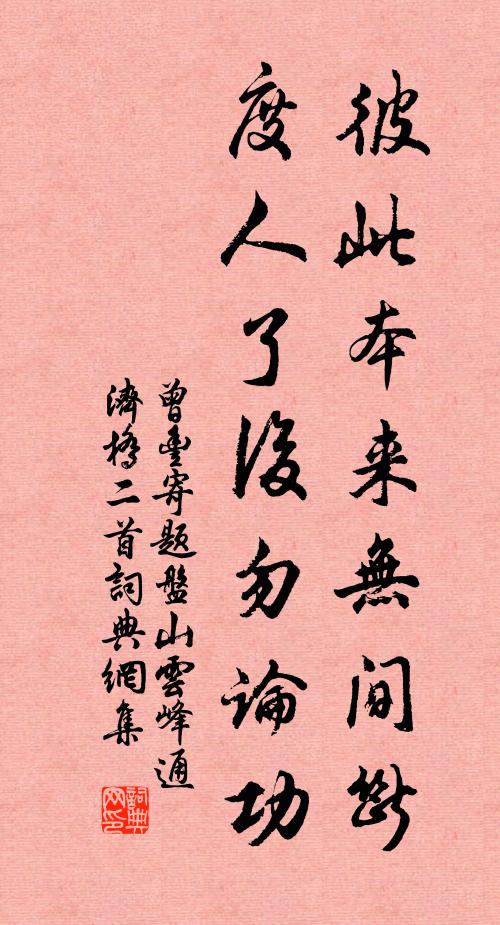 彼此本来無间斷
度人了後勿論功
曾豊寄題盤山雲峰通
濟橋二首詞典網集
詞典
网印